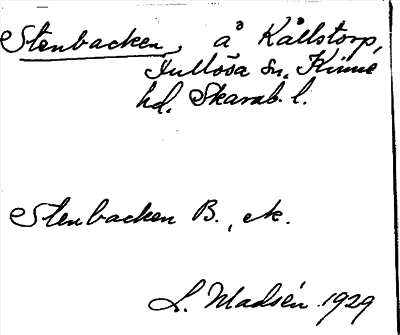 Stenbacken, å Källstorp,
Fullösa sn. Kinne
hd. Skarab. l.
Stenbacken B., ek.
L. Madsén 1929